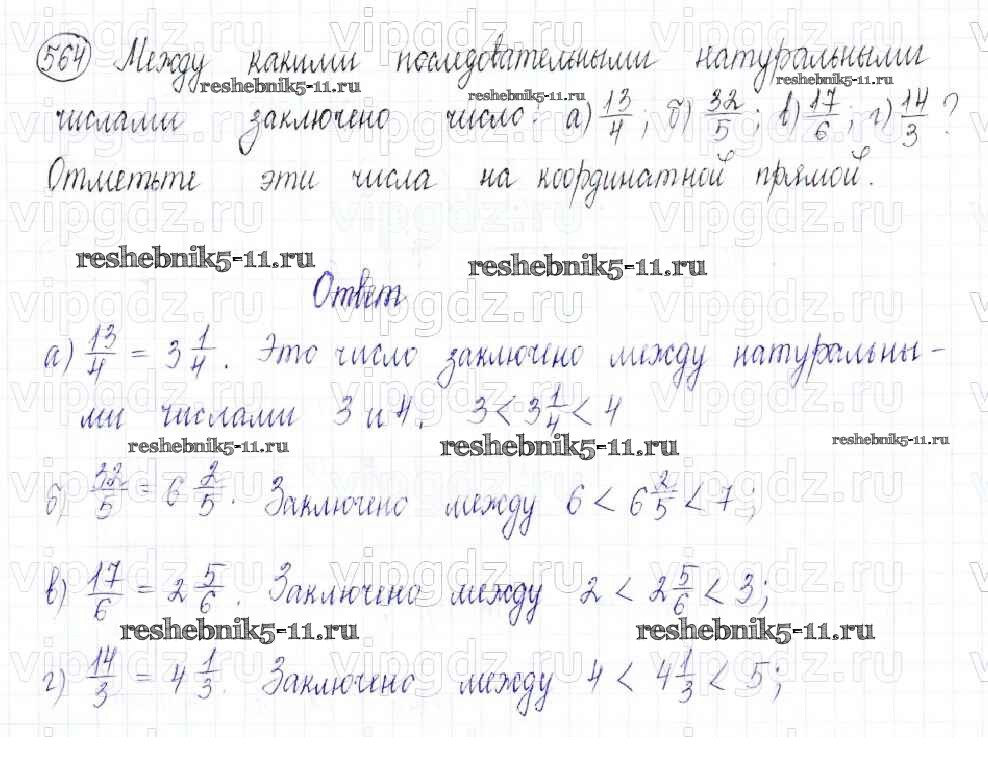 564 Между какими последовательными натуральными
reshebnik5-11.ru reshebnik5-11.ru
числами заключено число: а) 13/4; б) 32/5; в) 17/6; г) 14/3?
Отметьте эти числа на координатной прямой.
vipgdz.ru vipgdz.ru vipgdz.ru vipgdz.ru
reshebnik5-11.ru reshebnik5-11.ru
Ответ
а) 13/4 = 3 1/4. Это число заключено между натуральны-
ми числами 3 и 4. 3 < 3 1/4 < 4
reshebnik5-11.ru reshebnik5-11.ru reshebnik5-11.ru
б) 32/5 = 6 2/5. Заключено между 6 < 6 2/5 < 7;
в) 17/6 = 2 5/6. Заключено между 2 < 2 5/6 < 3;
reshebnik5-11.ru reshebnik5-11.ru
г) 14/3 = 4 1/3. Заключено между 4 < 4 1/3 < 5;